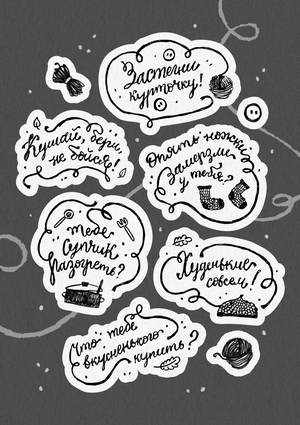 Застегни
курточку!
Кушай, бери,
не бойся!
Опять ножки
замёрзли
у тебя?
Тебе
супчик
разогреть?
Худенькие
совсем!
Что тебе
вкусненького
купить?